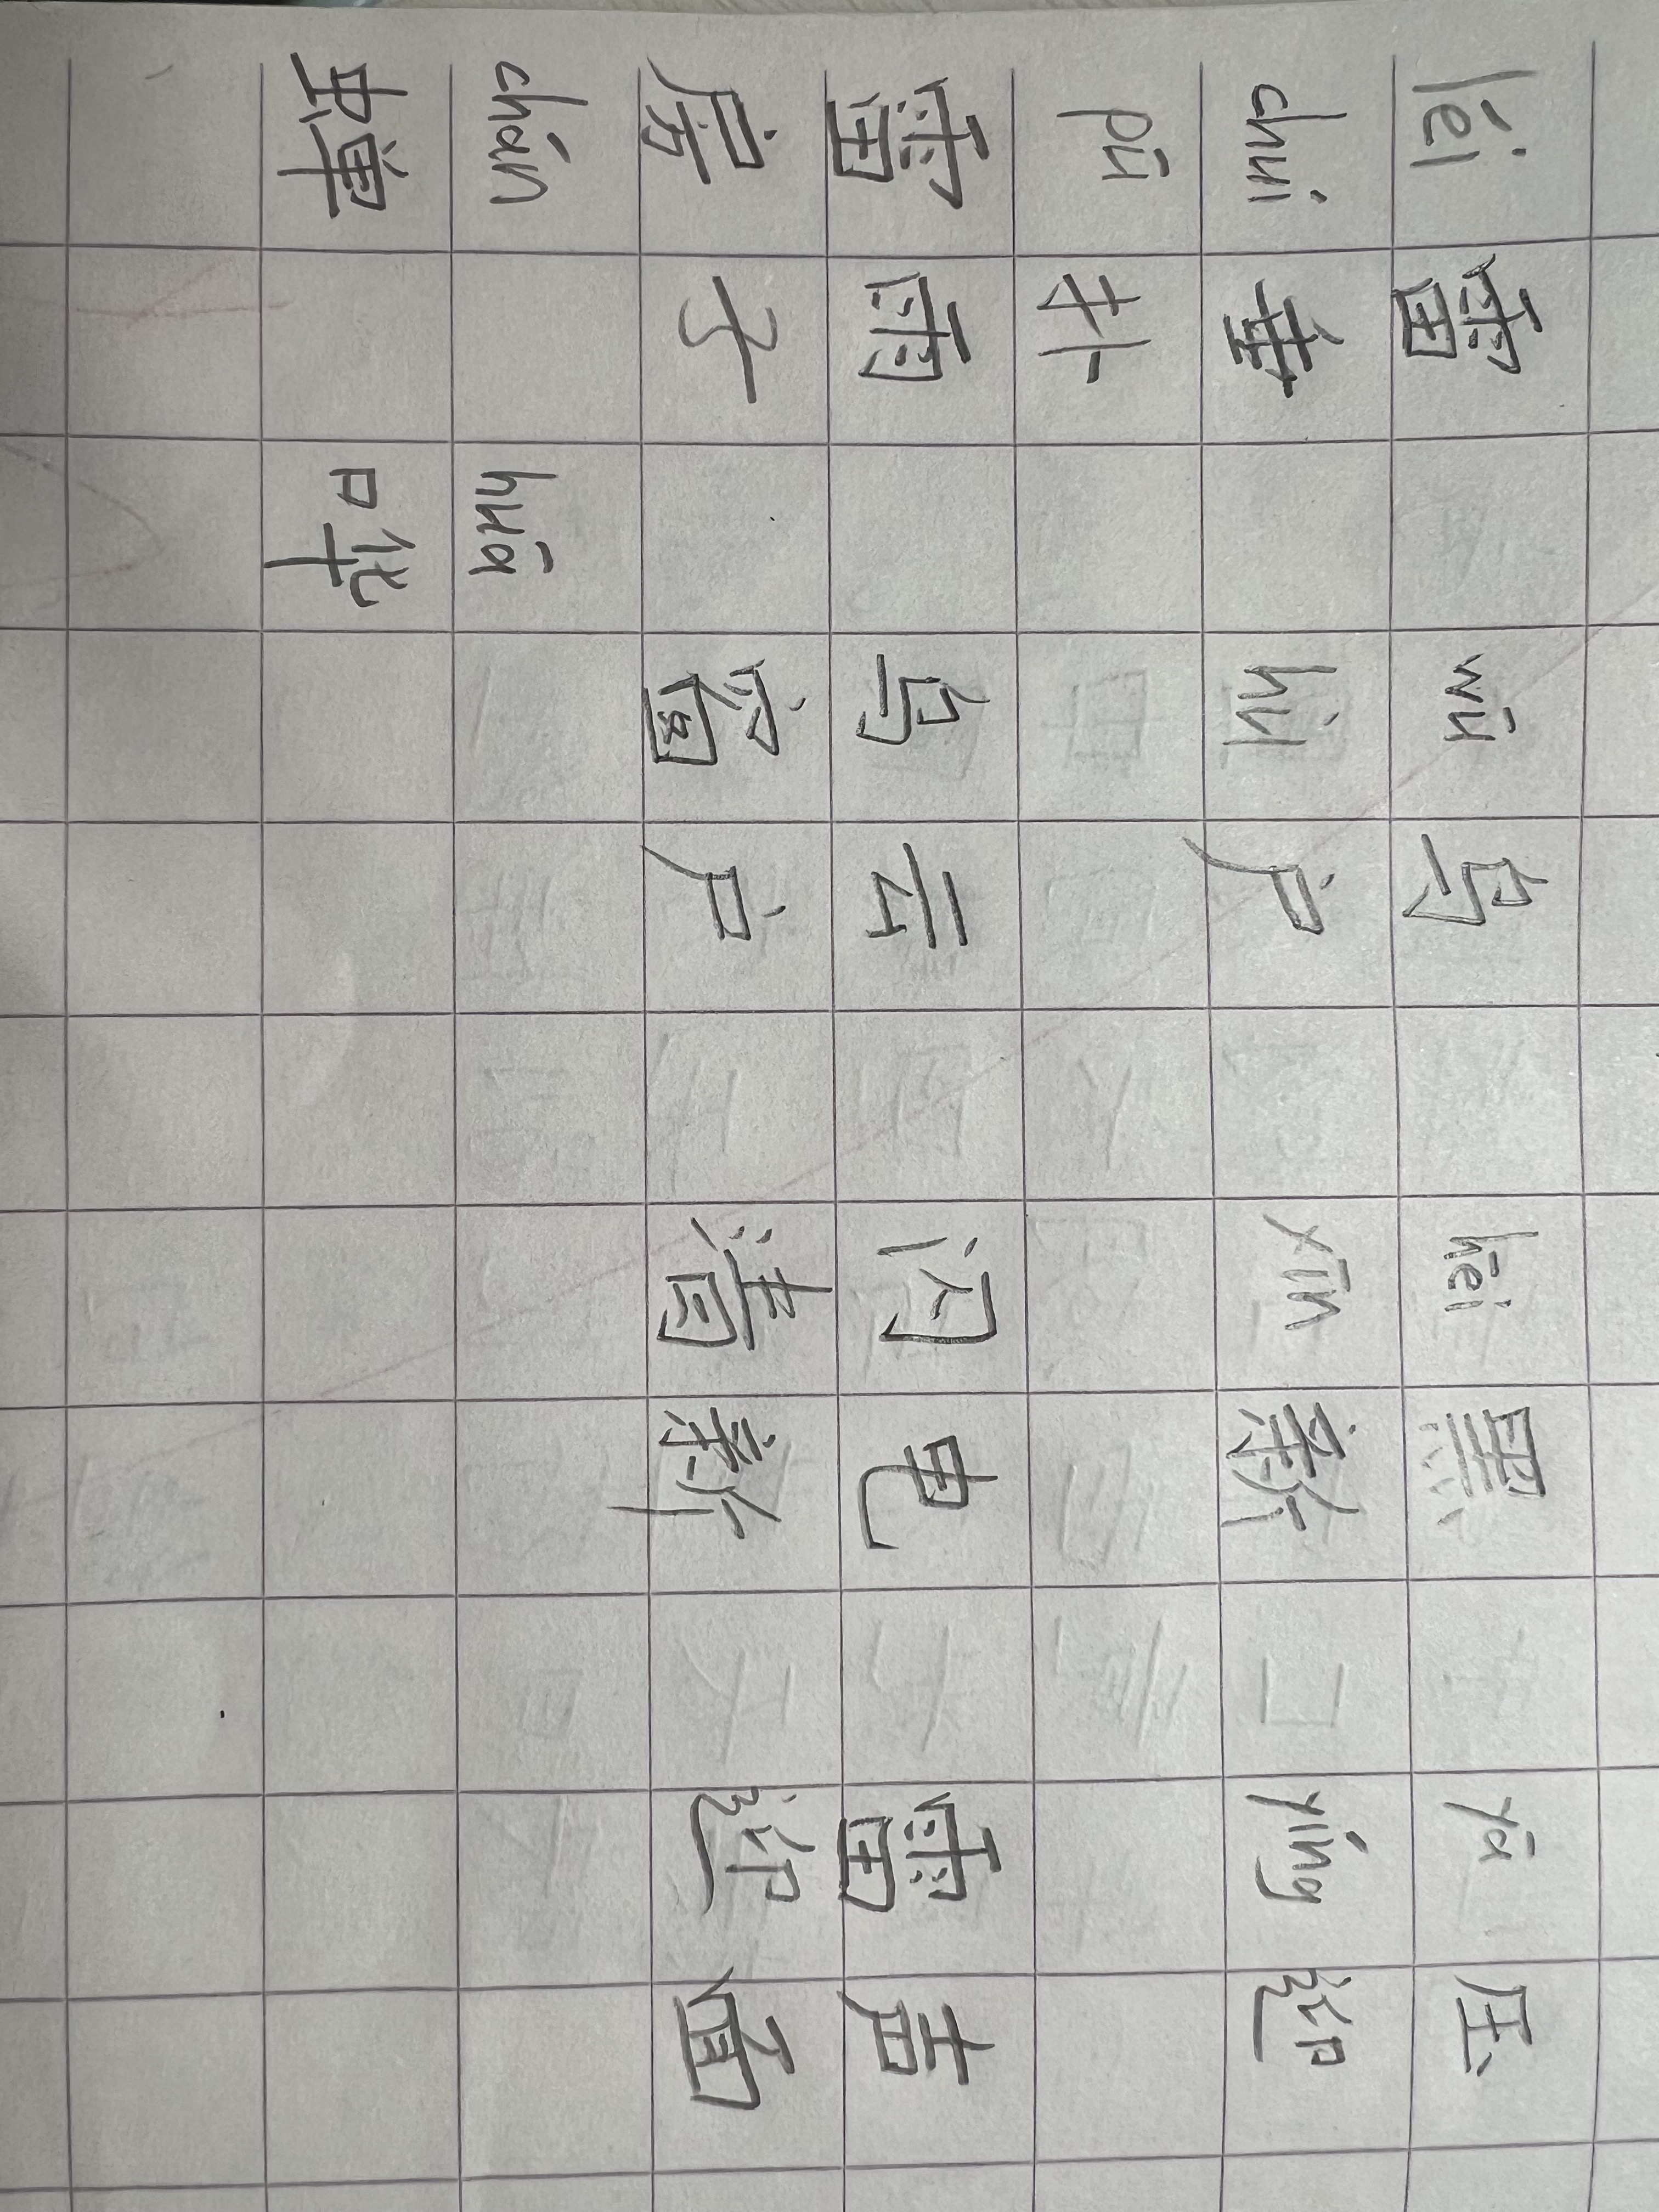 léi 雷 wū 乌 hēi 黑 yā 压
chuí 垂 hù 户 xīn 新 yíng 迎
pū 扑
雷雨 乌云 闪电 雷声
房子 窗户 清新 迎面
chán huā
蝉 哗